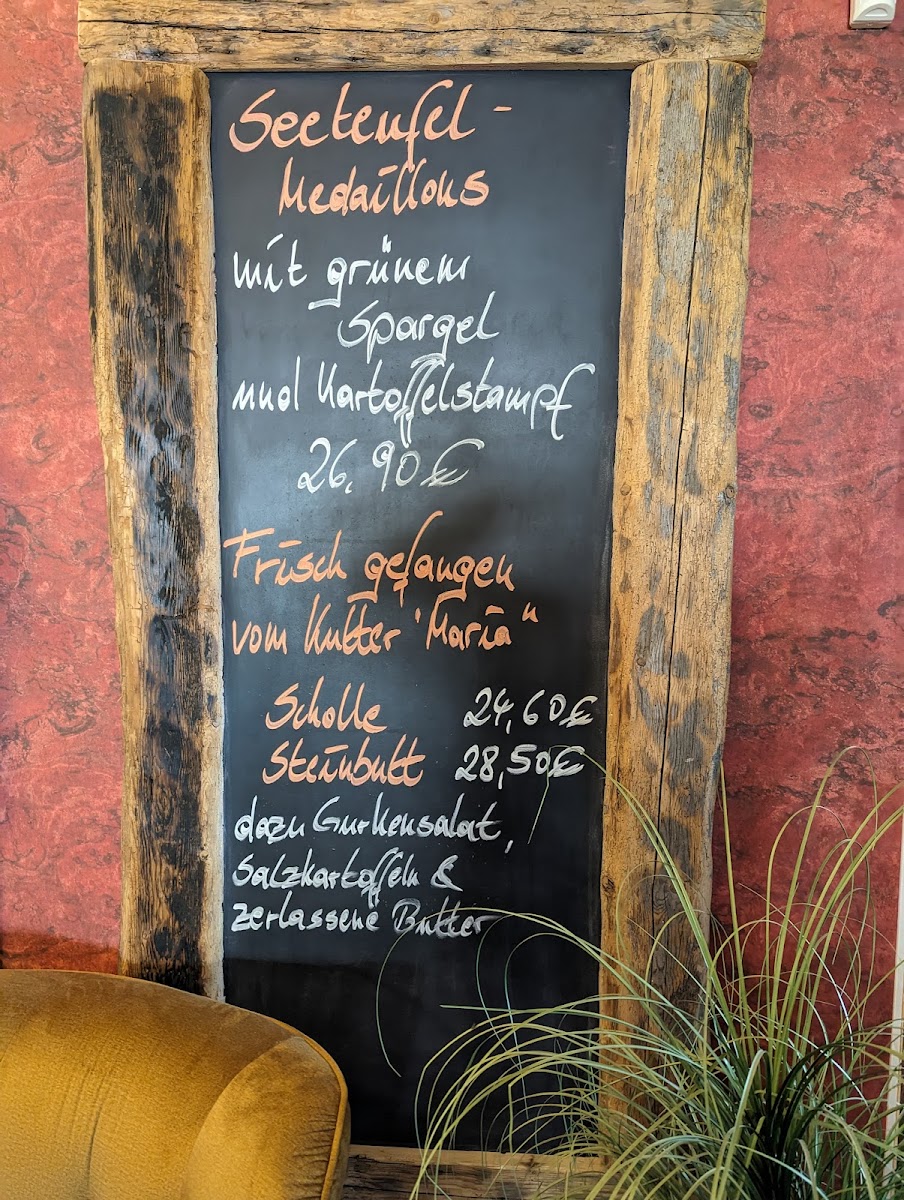 Seeteufel-
Medaillons
mit grünem
Spargel
und Kartoffelstampf
26,90 €
Frisch gefangen
vom Kutter "Maria"
Scholle 24,60 €
Steinbutt 28,50 €
dazu Gurkensalat,
Salzkartoffeln &
zerlassene Butter